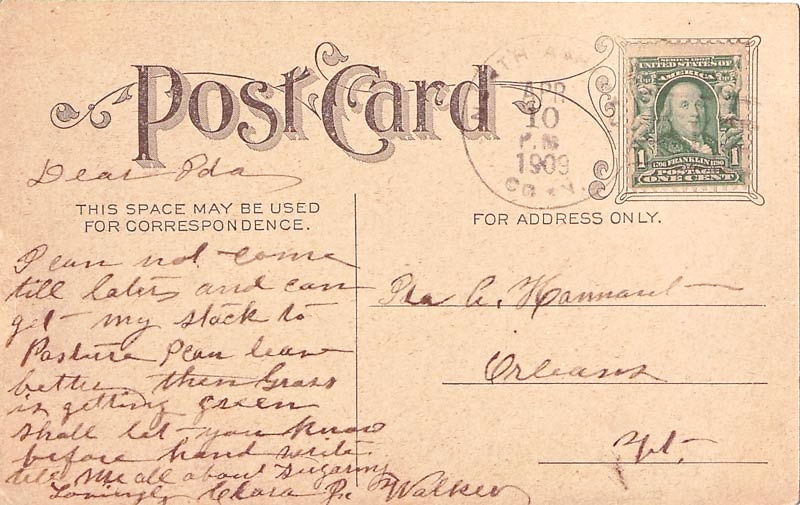 Post Card
TH A
APR
10
P.M.
1909
CONN.
SERIES 1902
UNITED STATES OF
AMERICA
1 1
1706 FRANKLIN 1790
POSTAGE
ONE CENT
Dear Ida
THIS SPACE MAY BE USED
FOR CORRESPONDENCE.
FOR ADDRESS ONLY.
I can not come
till later and can
get my stock to
Pasture I can leave
better then Grass
is getting green
shall let you know
before hand write
tell me all about Sugaring
Lovingly Clara Walker
Ida A.
Orleans
Vt.